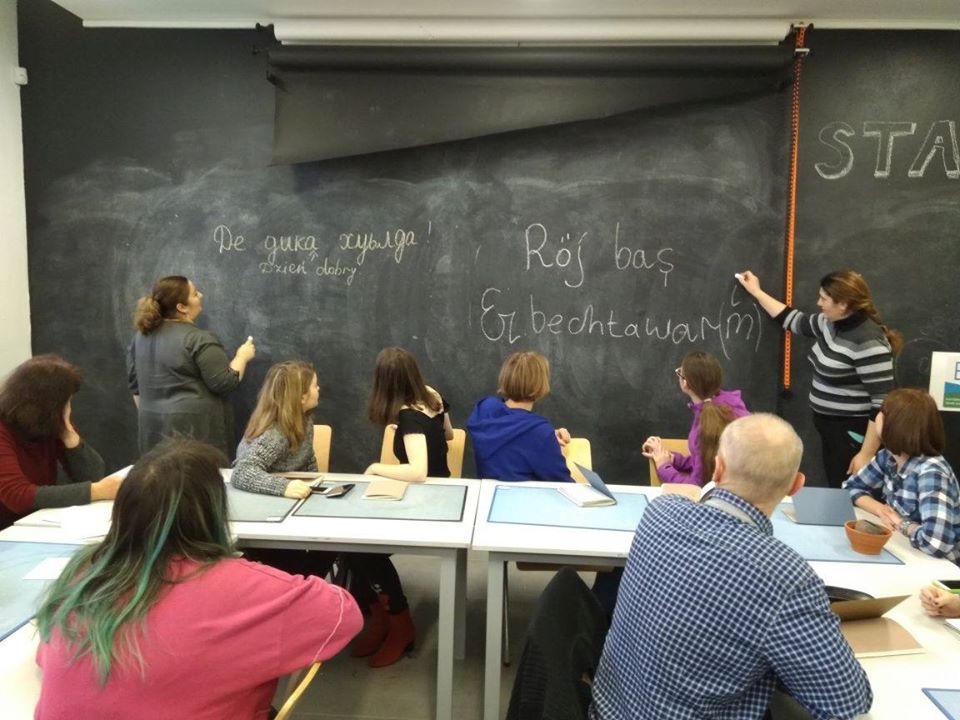 Де дика хуылда!
Dzień dobry!
Röj baş
Ez bechtawar(m)
STA